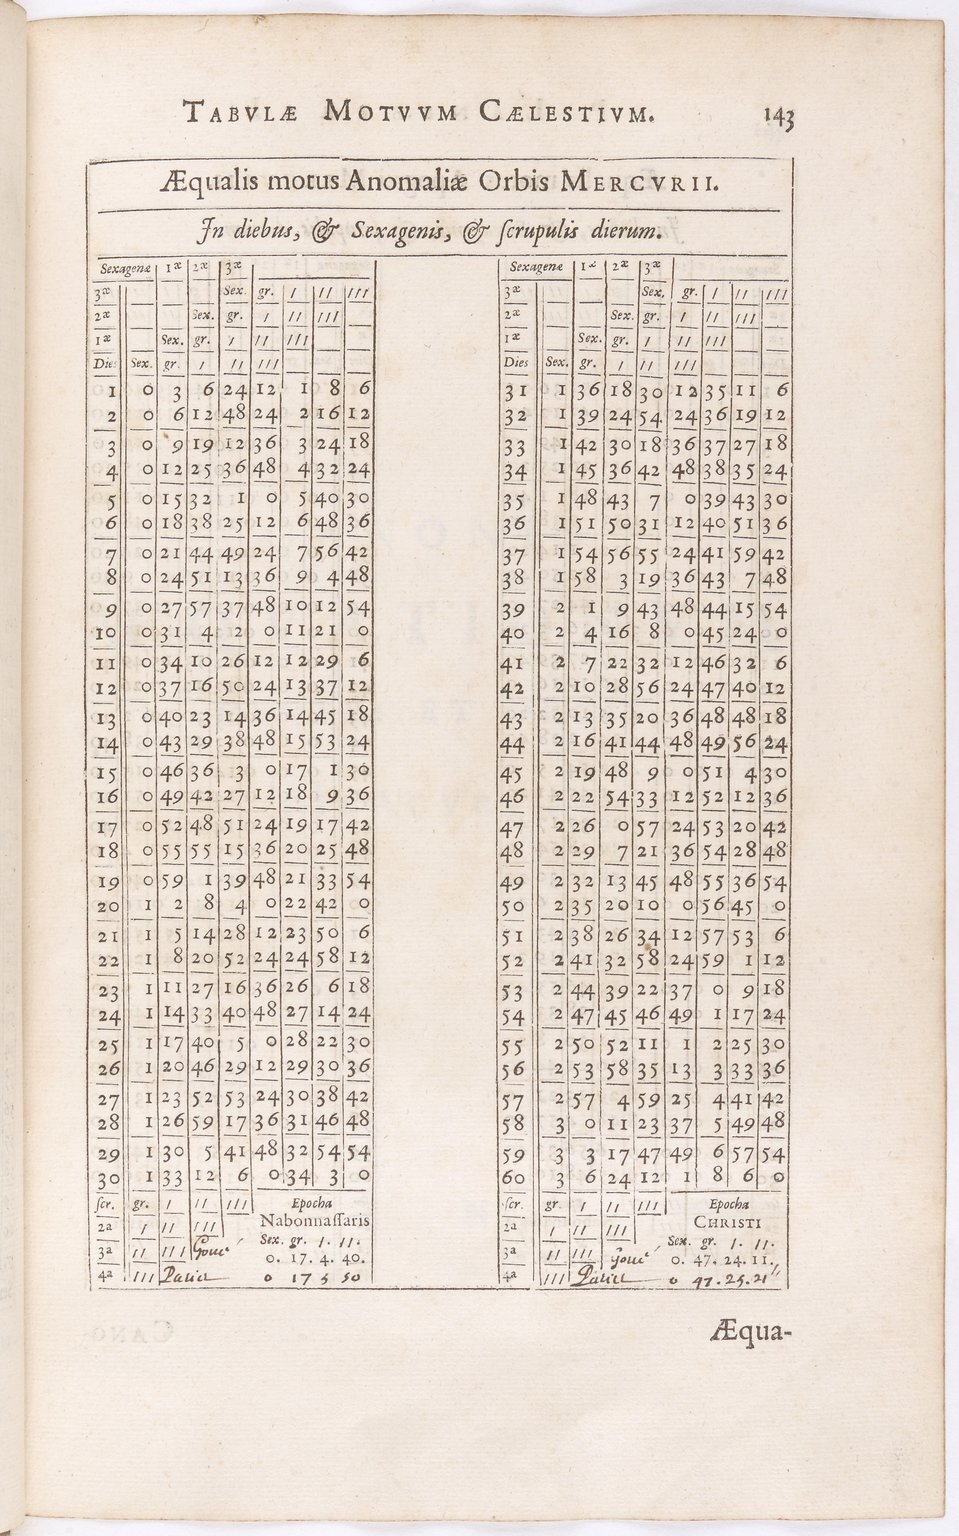 TABVLÆ MOTVVM CÆLESTIVM. 143
Æqualis motus Anomaliæ Orbis MERCVRII.
In diebus, & Sexagenis, & scrupulis dierum.
Sexagenæ 1æ 2æ 3æ
3æ Sex. gr. / // ///
2æ Sex. gr. / // ///
1æ Sex. gr. / // ///
Dies Sex. gr. / // ///
1 0 3 6 24 12 1 8 6
2 0 6 12 48 24 2 16 12
3 0 9 19 12 36 3 24 18
4 0 12 25 36 48 4 32 24
5 0 15 32 1 0 5 40 30
6 0 18 38 25 12 6 48 36
7 0 21 44 49 24 7 56 42
8 0 24 51 13 36 9 4 48
9 0 27 57 37 48 10 12 54
10 0 31 4 2 0 11 21 0
11 0 34 10 26 12 12 29 6
12 0 37 16 50 24 13 37 12
13 0 40 23 14 36 14 45 18
14 0 43 29 38 48 15 53 24
15 0 46 36 3 0 17 1 30
16 0 49 42 27 12 18 9 36
17 0 52 48 51 24 19 17 42
18 0 55 55 15 36 20 25 48
19 0 59 1 39 48 21 33 54
20 1 2 8 4 0 22 42 0
21 1 5 14 28 12 23 50 6
22 1 8 20 52 24 24 58 12
23 1 11 27 16 36 26 6 18
24 1 14 33 40 48 27 14 24
25 1 17 40 5 0 28 22 30
26 1 20 46 29 12 29 30 36
27 1 23 52 53 24 30 38 42
28 1 26 59 17 36 31 46 48
29 1 30 5 41 48 32 54 54
30 1 33 12 6 0 34 3 0
scr. gr. / // /// Epocha
2a / // /// Nabonnassaris
3a // /// Sex. gr. /. //.
0. 17. 4. 40.
4a /// 0 17 5 50
Sexagenæ 1æ 2æ 3æ
3æ Sex. gr. / // ///
2æ Sex. gr. / // ///
1æ Sex. gr. / // ///
Dies Sex. gr. / // ///
31 1 36 18 30 12 35 11 6
32 1 39 24 54 24 36 19 12
33 1 42 30 18 36 37 27 18
34 1 45 36 42 48 38 35 24
35 1 48 43 7 0 39 43 30
36 1 51 50 31 12 40 51 36
37 1 54 56 55 24 41 59 42
38 1 58 3 19 36 43 7 48
39 2 1 9 43 48 44 15 54
40 2 4 16 8 0 45 24 0
41 2 7 22 32 12 46 32 6
42 2 10 28 56 24 47 40 12
43 2 13 35 20 36 48 48 18
44 2 16 41 44 48 49 56 24
45 2 19 48 9 0 51 4 30
46 2 22 54 33 12 52 12 36
47 2 26 0 57 24 53 20 42
48 2 29 7 21 36 54 28 48
49 2 32 13 45 48 55 36 54
50 2 35 20 10 0 56 45 0
51 2 38 26 34 12 57 53 6
52 2 41 32 58 24 59 1 12
53 2 44 39 22 37 0 9 18
54 2 47 45 46 49 1 17 24
55 2 50 52 11 1 2 25 30
56 2 53 58 35 13 3 33 36
57 2 57 4 59 25 4 41 42
58 3 0 11 23 37 5 49 48
59 3 3 17 47 49 6 57 54
60 3 6 24 12 1 8 6 0
scr. gr. / // /// Epocha
2a / // /// CHRISTI
3a // /// Sex. gr. /. //.
0. 47. 24. 11.
4a /// 0 47. 25. 21 //
Æqua-